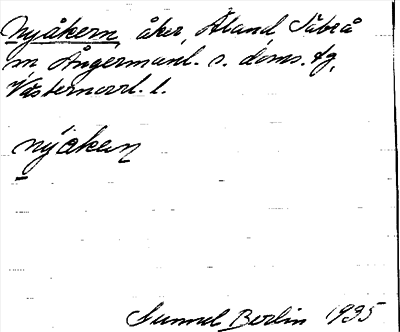 Nyåkern, åker, Åland Säbrå
sn Ångermanl. s. doms. tg,
Västernorrl. l.
nýåkeṇ
Gunnel Berlin 1935